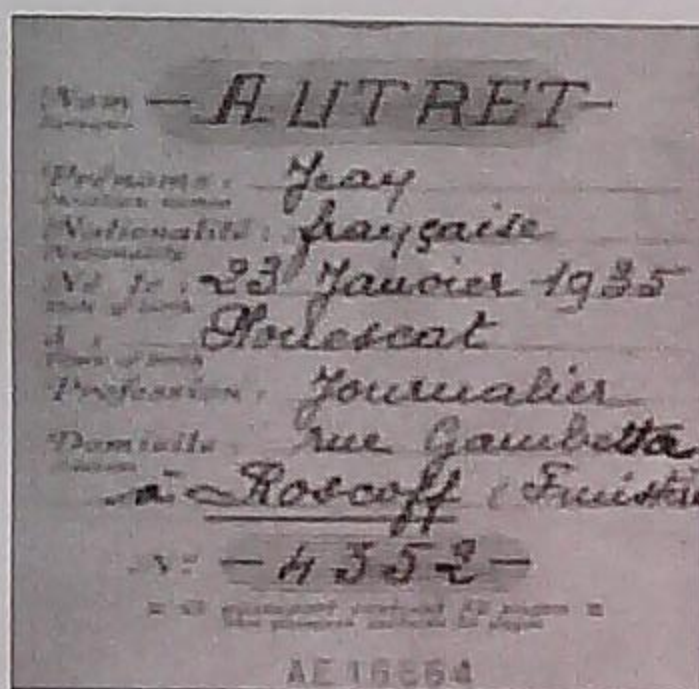 Nom - AUTRET -
Prénoms : Jean
Nationalité : française
Nationality
Né le : 23 Janvier 1935
Date of birth
à : Plouescat
Place of birth
Profession : Journalier
Domicile : rue Gambetta
à Roscoff (Finist
N° - 4352 -
AE16864